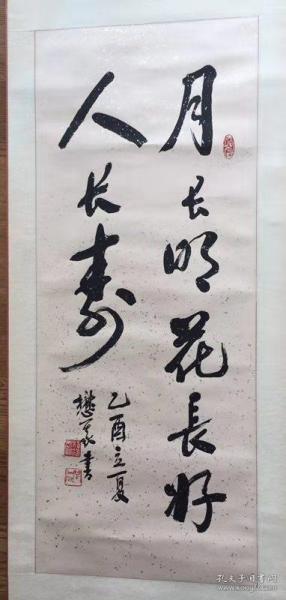 月长明花長好
人长寿
乙酉立夏
懋
书
孔夫子旧书网